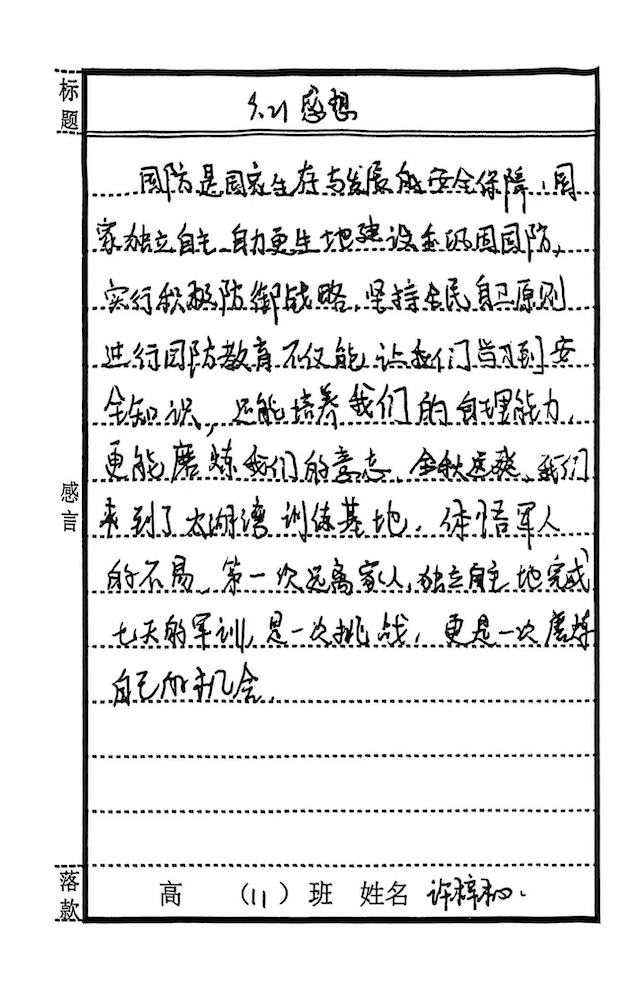 标题
9.21 感想
国防是国家生存与发展的安全保障,国
家独立自主、自力更生地建设和巩固国防、
实行积极防御战略,坚持全民自卫原则
进行国防教育不仅能让我们学习到安
全知识,还能培养我们的自理能力,
更能磨炼我们的意志。金秋送爽,我们
来到了太湖湾训练基地,体悟军人
的不易、第一次远离家人,独立自主地完成
七天的军训,是一次挑战,更是一次磨炼
自己的机会。
感言
落款
高 (11) 班 姓名 许梓